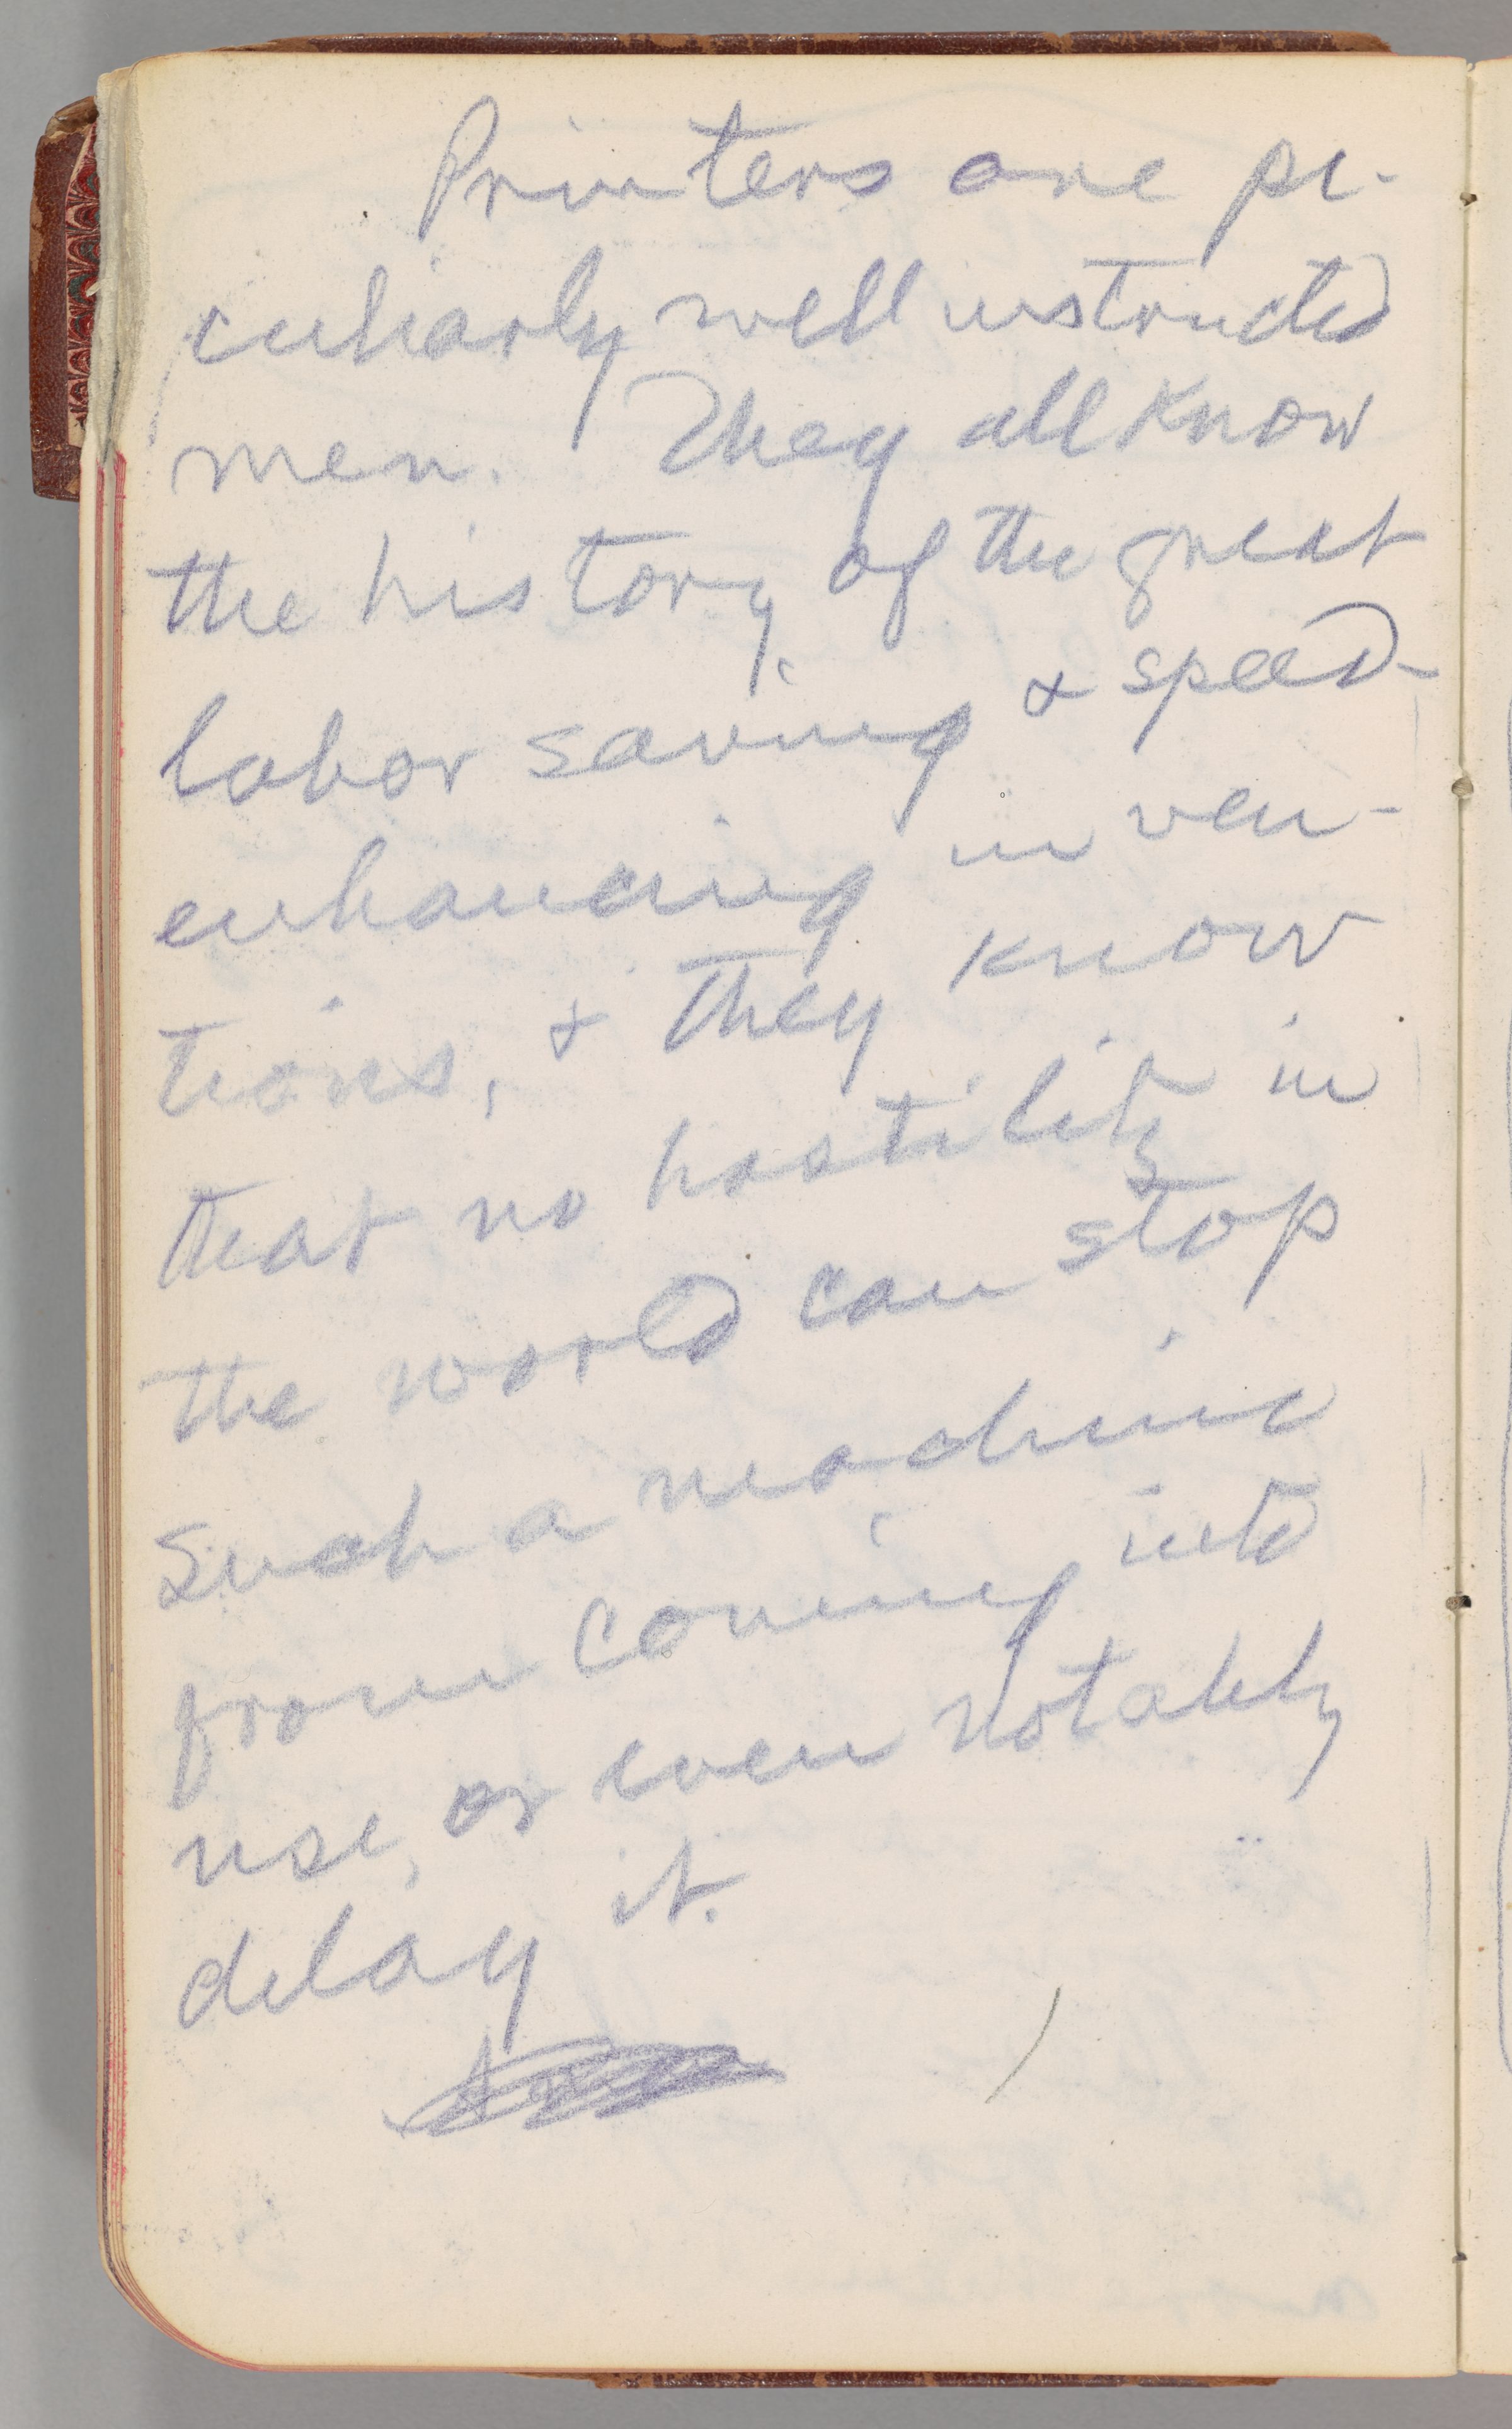 Printers are pe-
culiarly well instructed
men. They all know
the history of the great
labor saving & speed-
enhancing inven-
tions, & they know
that no hostility in
the world can stop
such a machine
from coming into
use, or even notably
delay it.